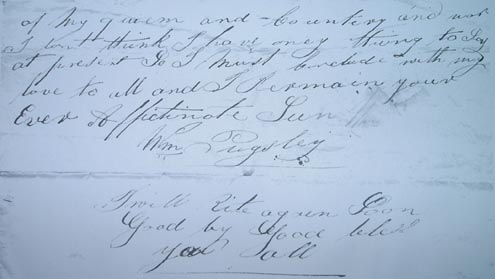 of my queen and Countery and now
I dont think I have oney thing to Say
at present So I must Conclude with my
love to all and I Remain your
Ever Affictinate Sun
Wm Pugsley
I will Rite again Soon
Good by Good bless
you all